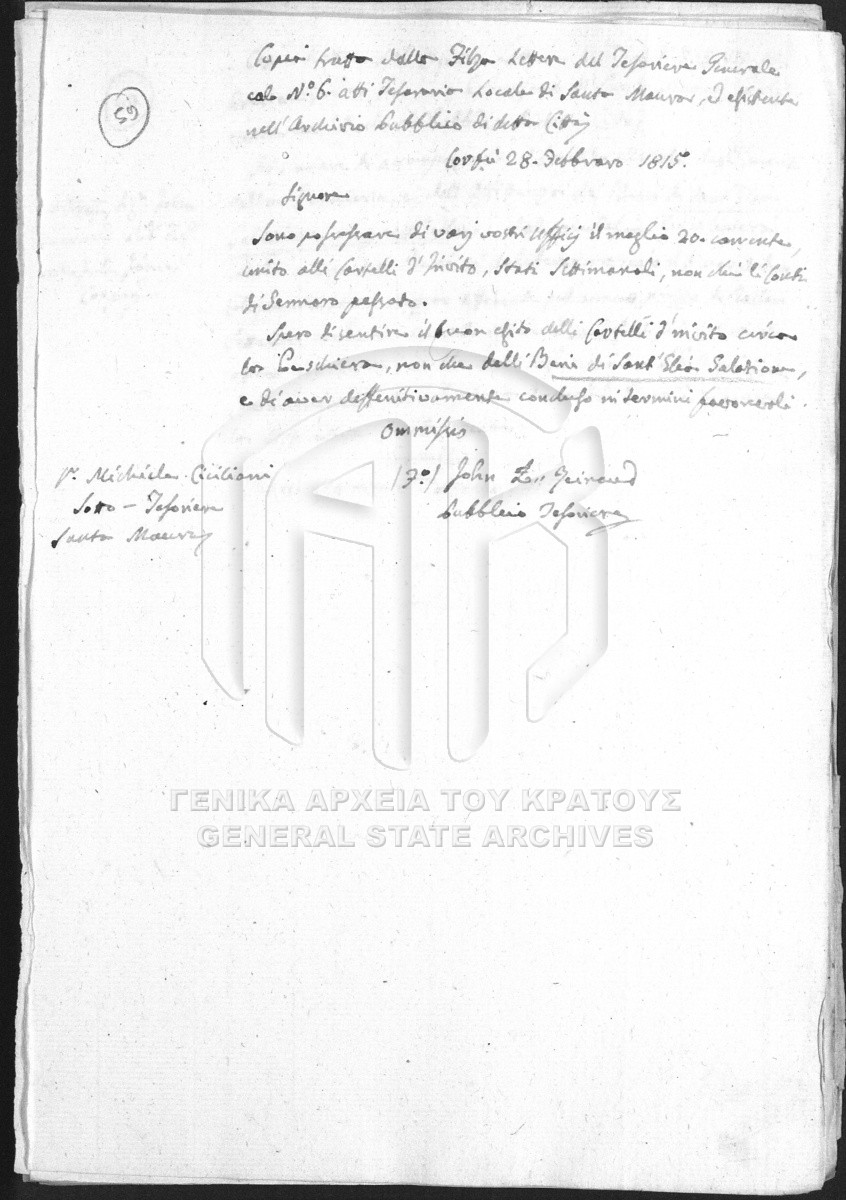 59
Copia tratta dalla Filza Lettere del Tesoriere Generale
col N.º 6. atti Tesoreria Locale di Santa Maura, ed esistente
nell'Archivio Pubblico di detta Città
Corfù 28. Febbraro 1815.
Signore
Sono possessore di varj vostri Ufficj il meglio 20. corrente,
unito alli Cartelli d'Invito, Stati Settimanali, non che li Conti
di Gennaro passato.
Spero di sentire il buon esito delli Cartelli d'invito circa
la Peschiera, non che delli Beni di Sant'
e di aver deffinitivamente concluso in termini favorevoli.
Ommissis
Sr. Michiele Ciciliani
Sotto - Tesoriere
Santa Maura
/F.º/ John
Pubblico Tesoriere
ΓΕΝΙΚΑ ΑΡΧΕΙΑ ΤΟΥ ΚΡΑΤΟΥΣ
GENERAL STATE ARCHIVES